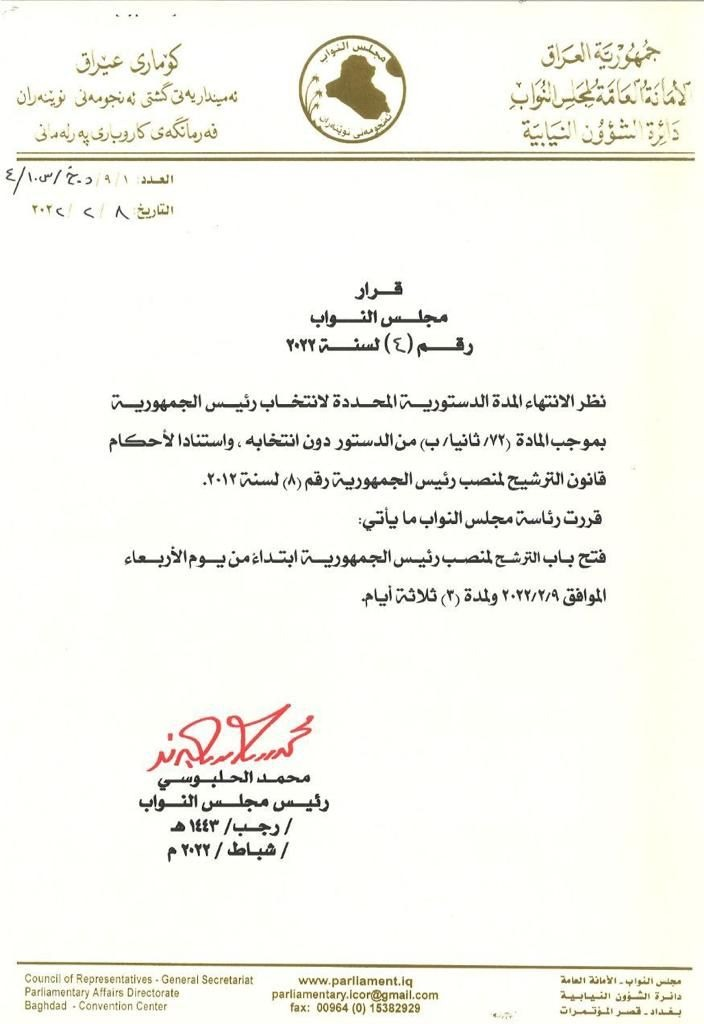 جمهورية العراق
الأمانة العامة لمجلس النواب
دائرة الشؤون النيابية
مجلس النواب
ئەنجومەنی نوێنەران
كۆماری عێراق
ئەمینداریەتی گشتی ئەنجومەنی نوێنەران
فەرمانگەی كاروباری پەرلەمانی
العدد: ١/٩/
التاريخ: ٨/٢/٢٠٢٢
قرار
مجلس النواب
رقم (٤) لسنة ٢٠٢٢
نظر الانتهاء المدة الدستورية المحددة لانتخاب رئيس الجمهورية
بموجب المادة (٧٢/ ثانيا/ ب) من الدستور دون انتخابه ، واستنادا لأحكام
قانون الترشيح لمنصب رئيس الجمهورية رقم (٨) لسنة ٢٠١٢.
قررت رئاسة مجلس النواب ما يأتي:
فتح باب الترشح لمنصب رئيس الجمهورية ابتداءً من يوم الأربعاء
الموافق ٢٠٢٢/٢/٩ ولمدة (٣) ثلاثة أيام.
محمد الحلبوسي
رئيس مجلس النواب
/ رجب/ ١٤٤٣ هـ
/ شباط / ٢٠٢٢ م
Council of Representatives - General Secretariat
Parliamentary Affairs Directorate
Baghdad - Convention Center
www.parliament.iq
parliamentary.icor@gmail.com
fax: 00964 (0) 15382929
مجلس النواب - الأمانة العامة
دائرة الشؤون النيابية
بغداد - قصر المؤتمرات